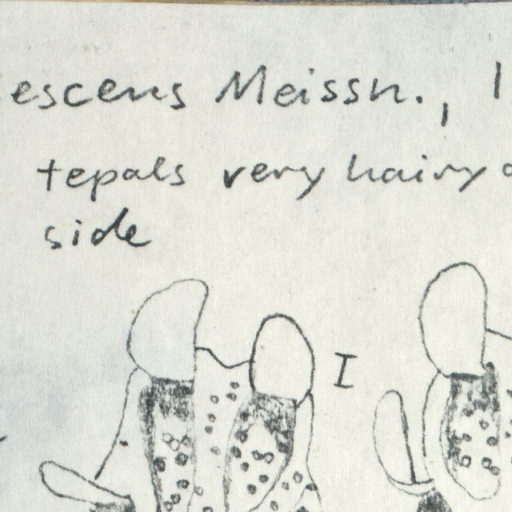 escens Meissn., 1
tepals very hairy o
side
I